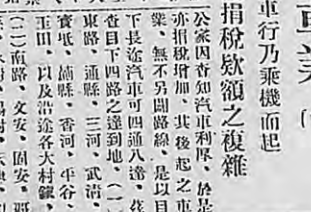 車行乃乘機而起
捐稅欵額之複雜
公家因查知汽車利厚、於是
亦捐稅增加、其後起之車
業、無不另闢路線、是以目
下長途汽車可四通八達、茲
查目下四路之達到地、(一)
東路、通縣、三河、武清、
寶坻、薊縣、香河、平谷、
玉田、以及沿途各大村鎮、
(二)南路、文安、固安、